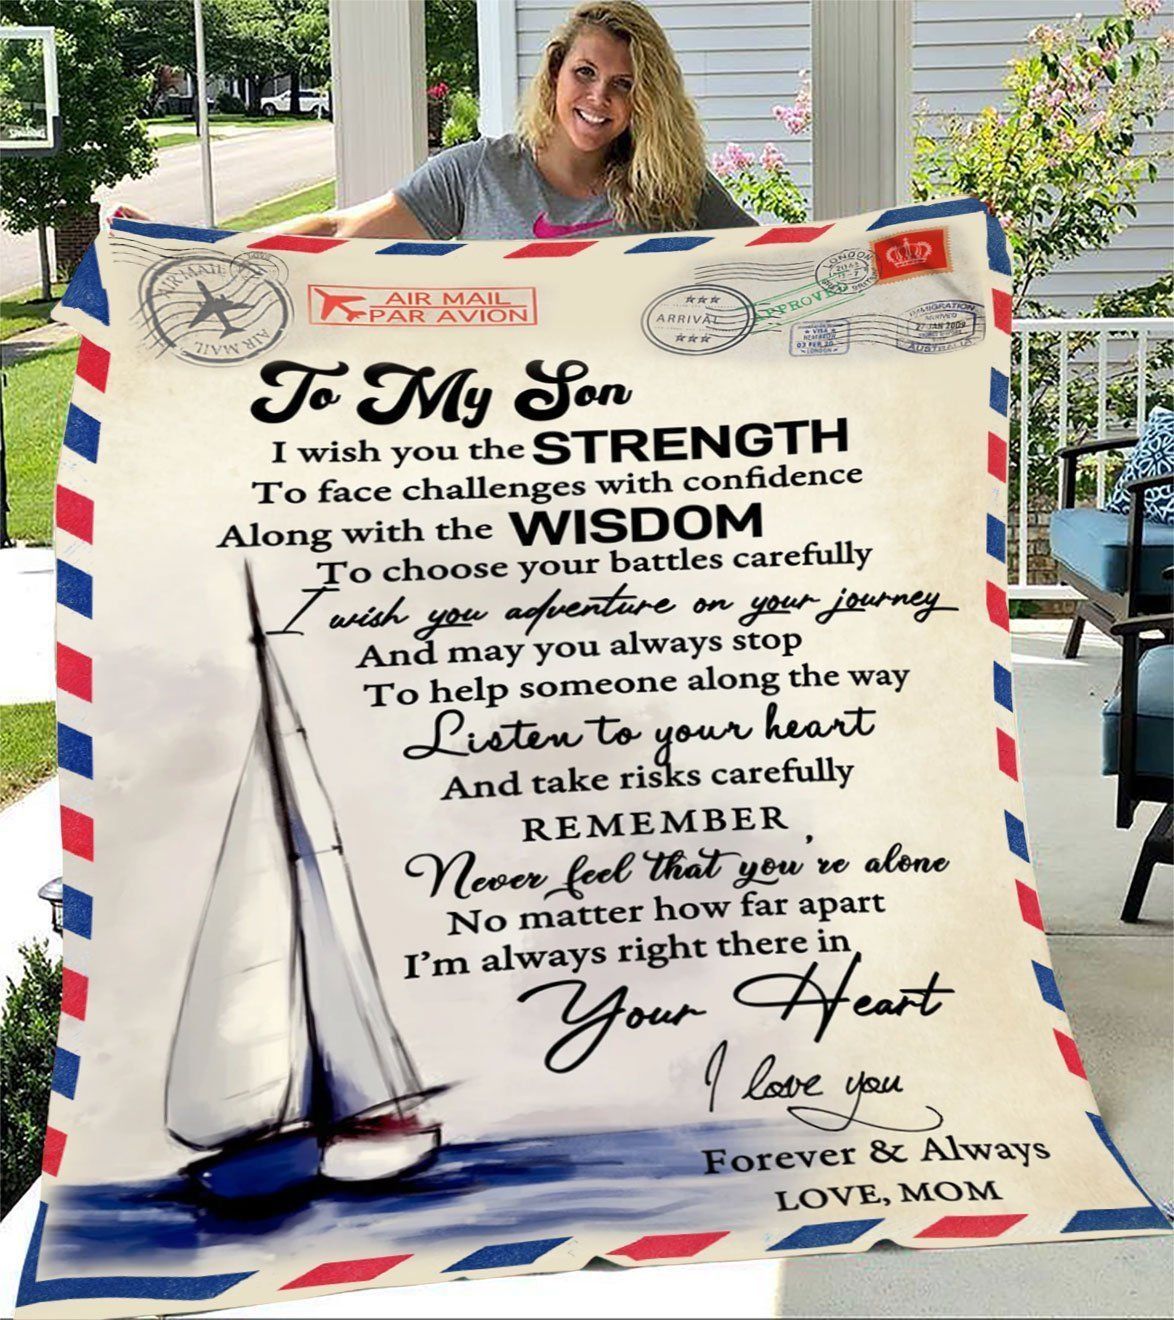 AIRMAIL
LOVE
AIR MAIL
AIR MAIL
PAR AVION
ARRIVAL
APPROVED
LONDON
IMMIGRATION
ARRIVED
27 JAN 2009
AUSTRALIA
VISA
03 FEB 20
LONDON
To My Son
I wish you the STRENGTH
To face challenges with confidence
Along with the WISDOM
To choose your battles carefully
I wish you adventure on your journey
And may you always stop
To help someone along the way
Listen to your heart
And take risks carefully
REMEMBER ,
Never feel that you're alone
No matter how far apart
I'm always right there in
Your Heart
I love you
Forever & Always
LOVE, MOM